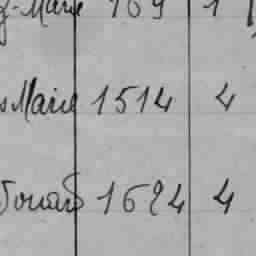 Marie 169 1
Marie 1514 4
1624 4